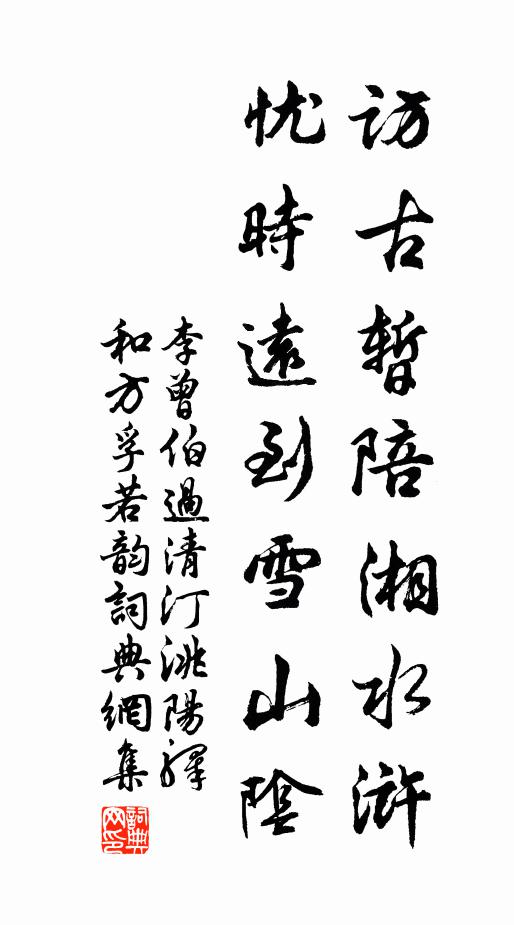 訪古暫陪湘水滸
忧時遠到雪山陰
李曾伯過清汀洮陽驛
和方孚若韵詞典網集
詞典
网印